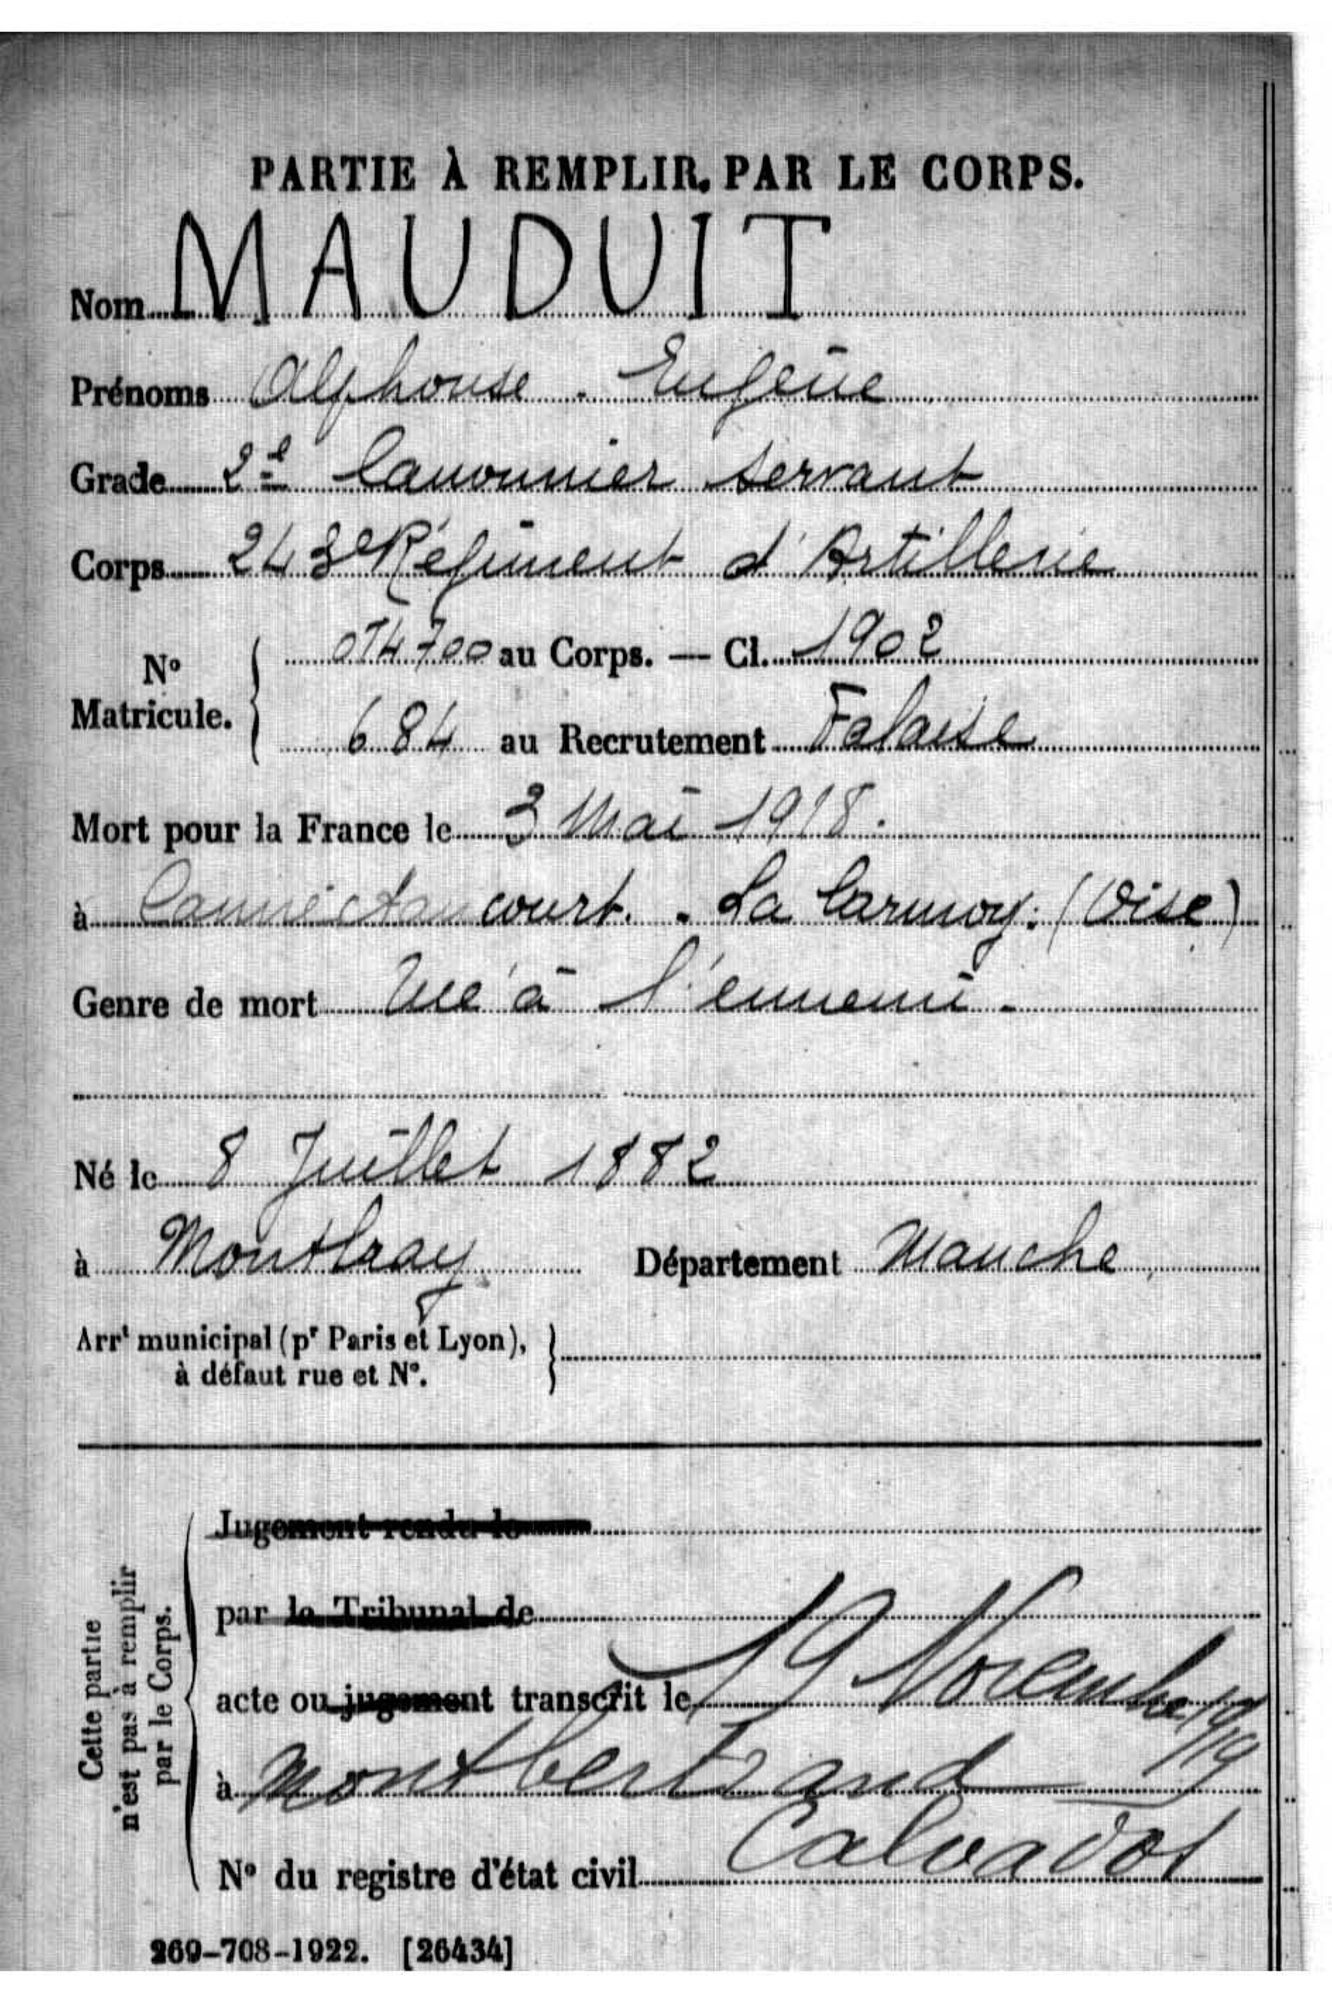 PARTIE À REMPLIR PAR LE CORPS.
Nom MAUDUIT
Prénoms Alphonse - Eugène
Grade 2e Canonnier servant
Corps 243e Régiment d'Artillerie
N° Matricule. { 0T4700 au Corps. — Cl. 1902
684 au Recrutement Falaise
Mort pour la France le 3 Mai 1918.
à Cannectancourt. - La Carmoy. (Oise)
Genre de mort Tué à l'ennemi -
Né le 8 Juillet 1882
à Montbray Département Manche
Arrt municipal (pr Paris et Lyon), }
à défaut rue et N°.
Cette partie
n'est pas à remplir
par le Corps.
Jugement rendu le
par le Tribunal de
acte ou jugement transcrit le 19 Novembre 1919
à Montbertrand
Calvados
N° du registre d'état civil
269-708-1922. [26434]